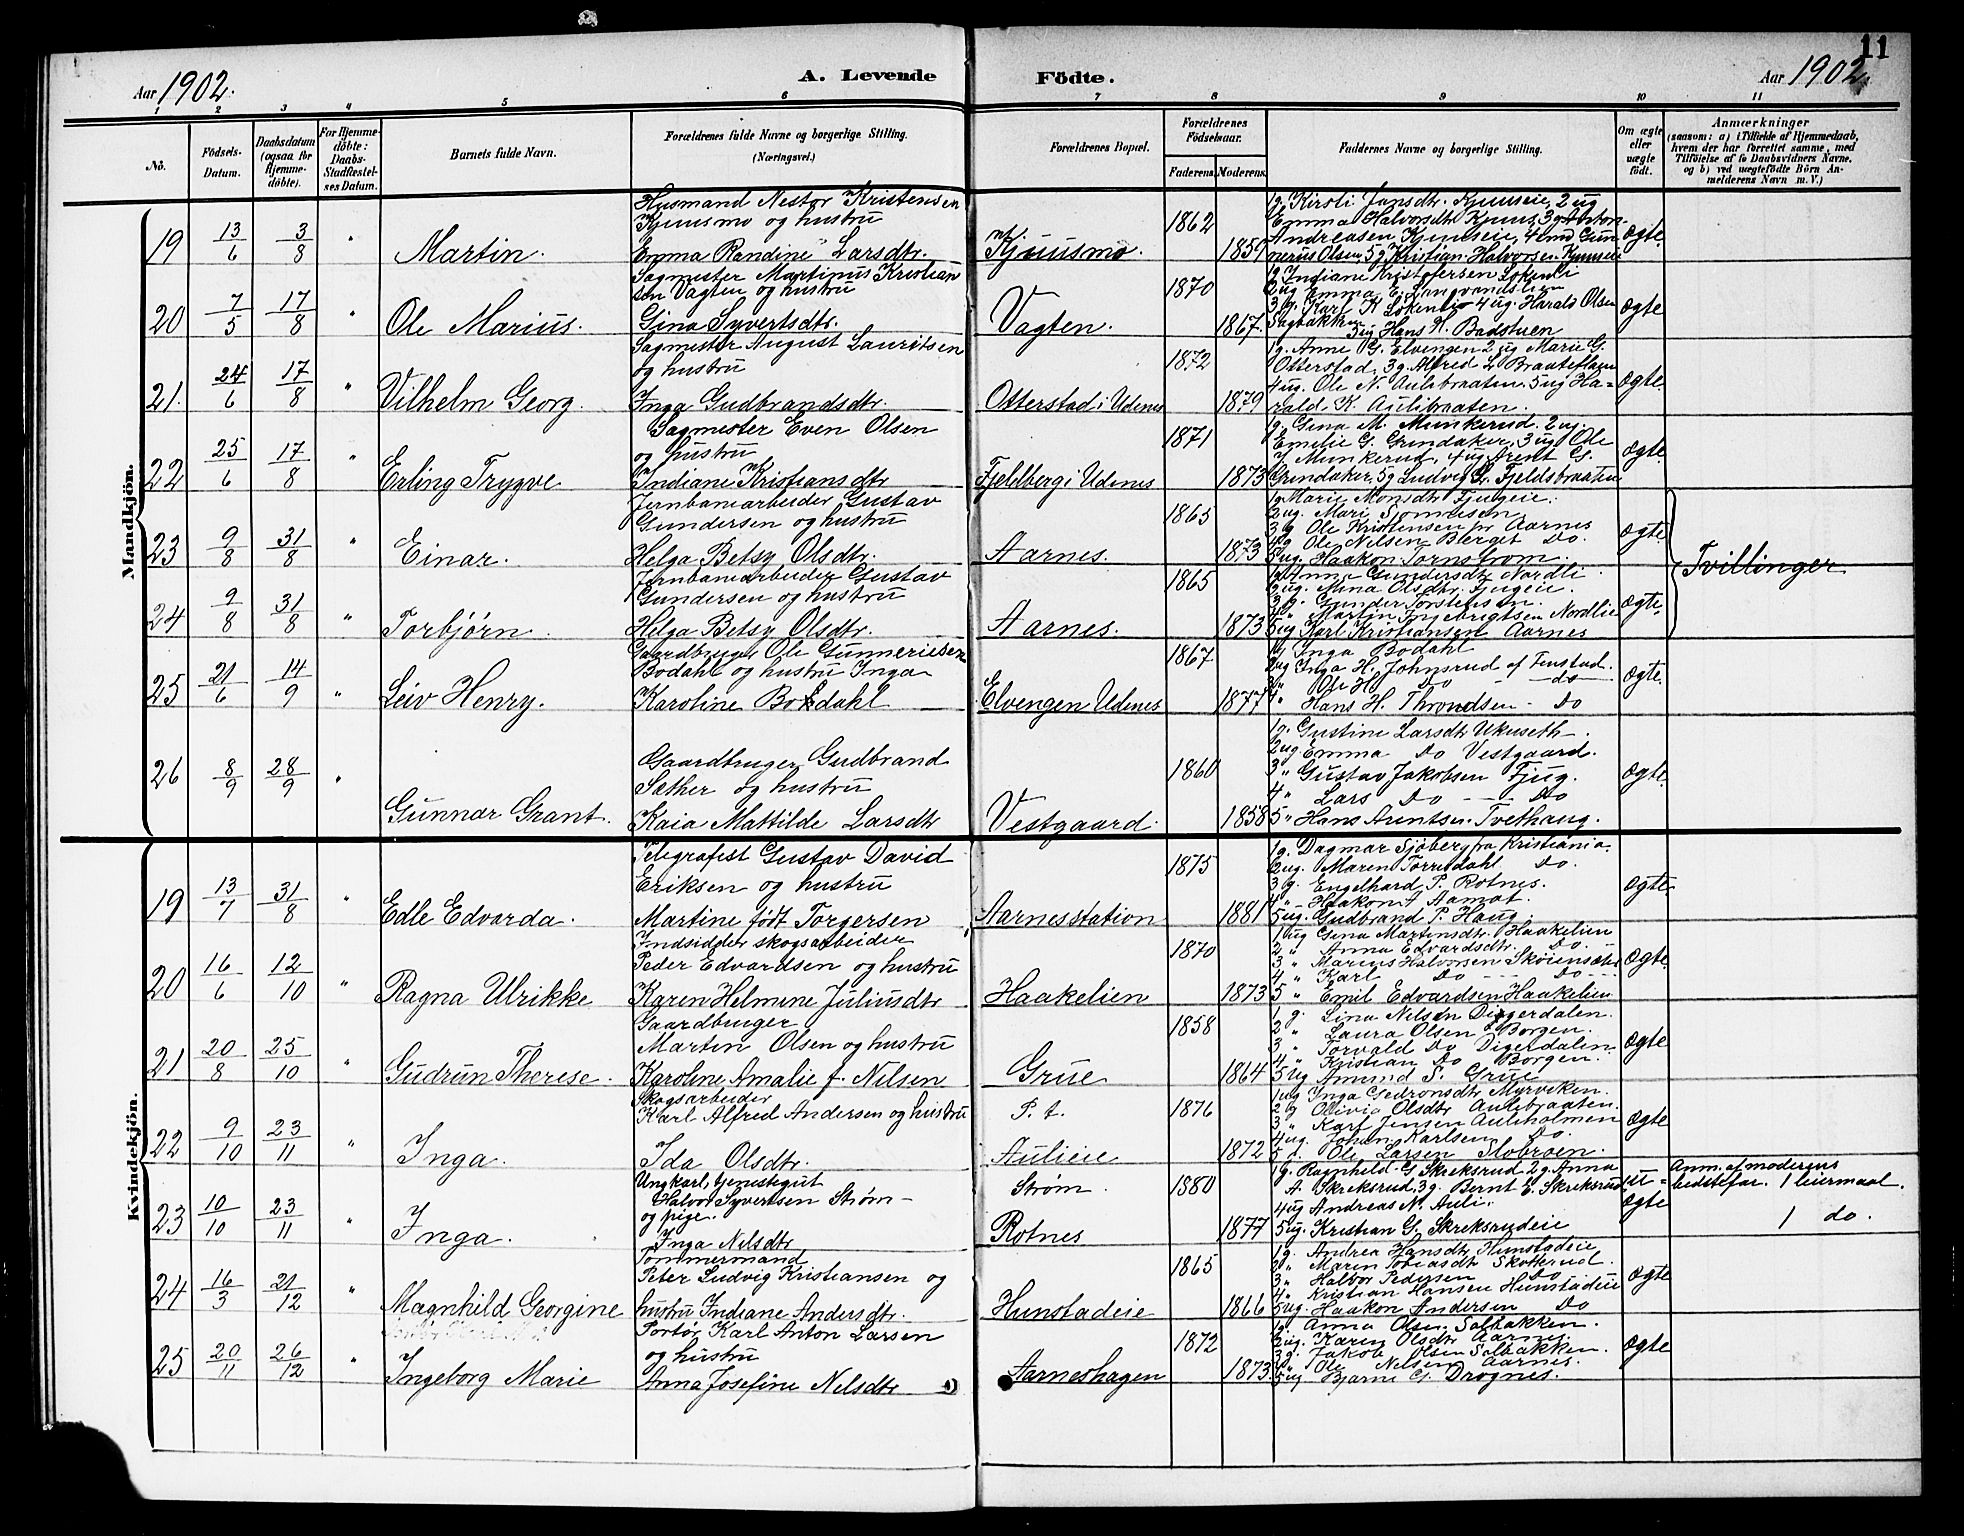 11
Aar 1902.
A. Levende
Födte.
Aar 1902.
1 2 3 4 5 6 7 8 9 10 11
No.
Födsels-
Datum.
Daabsdatum
(ogsaa for
Hjemme-
döbte).
For Hjemme-
döbte:
Daabs-
Stadfæstel-
ses Datum.
Barnets fulde Navn.
Forældrenes fulde Navne og borgerlige Stilling.
(Næringsvei.)
Forældrenes Bopæl.
Forældrenes
Födselsaar.
Faderens. Moderens.
Faddernes Navne og borgerlige Stilling.
Om ægte
eller
uægte
født.
Anmærkninger
(saasom: a) i Tilfælde af Hjemmedaab,
hvem der har forrettet samme, med
Tilföielse af to Daabsvidners Navne,
og b) ved uægtefödte Börn An-
melderens Navn m. V.)
Mandkjön.
19 13/6 3/8 " Martin.
Husmand Nestor Kristensen
Kjuusmo og hustru
Emma Randine Larsdtr.
Kjuusmo. 1862 1850
1g. Kirsti Jansdtr. Kjuuseie, 2 ug
Emma Halvorsdtr Kjuus, 3g Anton
Andreasen Kjuuseie, 4 em Gun-
nerus Olsen, 5g Kristian Halvorsen Kjuuseie
ægte.
20 7/5 17/8 Ole Marius.
Sagmester Martinus Kristian
sen Vagten og hustru
Gina Syvertsdtr.
Vagten. 1870 1867.
1g Indiane Kristofersen Lökenli
2ug Emma E.
3g. Karl K Lökenlie 4 ug. Harald Olsen
Sagbakken 5ug Hans H. Badstuen
ægte
21. 24/6 17/8 " Vilhelm Georg.
Sagmester August Lauritsen
og hustru
Inga Gudbrandsdtr.
Otterstad i Udenes 1872 1879
1g. Anne G. Elvengen 2 ug Marie G.
Otterstad, 3g Alfred L Braateflagen
4ug. Ole N. Aulibraaten, 5ug Ha-
rald K. Aulibraaten.
ægte.
22 25/6 17/8 " Erling Trygve
Sagmester Even Olsen
og hustru
Indiane Kristiansdtr
Fjeldberg i Udenes 1871 1873
1g. Gina M. Munkerud. 2 ug
Emelie G. Grindaker, 3 ug Ole
Munkerud, 4 ug Arent G.
Grindaker, 5g Ludvig L. Fjeldsbraaten
ægte.
23 9/8 31/8 " Einar.
Jernbanearbeider Gustav
Gundersen og hustru
Helga Betsy Olsdtr.
Aarnes. 1865 1873
1g Marie Monsdtr Fjugeie.
2ug. Mari
3g Ole Kristensen pr Aarnes
4g Ole Nilsen Berget Do.
5ug. Haakon Tornstrøm.
ægte.
Tvillinger
24 9/8 31/8 " Torbjörn.
Jernbanearbeider Gustav
Gundersen og hustru
Helga Betsy Olsdtr.
Aarnes. 1865 1873
1g Anne Gundersdtr Nordli
2ug. Mina Olsdtr. Fjugeie.
3g. Gunder Torstensen.
4 " Martin Ingebrigtsen Nordlie
5ug Karl Kristiansen Aarnes
ægte.
25 21/6 14/9 " Leiv Henry.
Gaardbruger Ole Gunneriusen
Bodahl og hustru Inga
Karoline Bodahl
Elvengen Udenes 1867 1877
1g Inga Bodahl
2ug Inga H. Johnsrud af Fenstad.
3 " Ole H. Do - do -
4 " Hans H. Throndsen - Do
ægte.
26 8/9 28/9 " Gunnar Grant.
Gaardbruger Gudbrand
Sæther og hustru
Kaia Mattilde Larsdtr
Vestgaard. 1860 1858
1g. Gustine Larsdtr Ukuseth.
2ug. Emma Do Vestgaard.
3 " Gustav Jakobsen Fjug.
4 " Lars Do - - Do
5 " Hans Arntsen Tvethaug.
ægte.
Kvindekjön.
19 13/7 31/8 " Edle Edvarda.
Telegrafist Gustav David
Eriksen og hustru
Martine født Torgersen
Aarnesstation 1875 1881
1g. Dagmar Sjöberg fra Kristiania.
2ug. Maren Torrudahl Do.
3g. Engelhard P. Rotnes.
4 - Haakon A Aamot.
5ug. Gudbrand P. Haug.
ægte.
20 16/6 12/10 " Ragna Ulrikke
Indsidder skogsarbeider
Peder Edvardsen og hustru
Karen Helmine Juliusdtr
Haakelien 1870 1873
1 ug Gina Martinsdtr. Haakelien
2 " Anna Edvardsdtr. Do.
3 " Marius Halvorsen Skøiensæter
4 " Karl Do - - Do - -
5 " Emil Edvardsen Haakelien
ægte.
21 20/8 25/10 " Gudrun Therese.
Gaardbruger
Martin Olsen og hustru
Karoline Amalie f. Nilsen
Grue 1858 1864
1 g. Lina Nilsen Digerdalen.
2 " Laura Olsen Borgen.
3 " Torvald Do Digerdalen
4 " Kristian Do Borgen.
5 ug Amund S. Grue
ægte
22 9/10 23/11 " Inga.
Skogsarbeider
Karl Alfred Andersen og hustru
Ida Olsdtr.
P. t.
Aulieie 1876 1872
1ug Inga Pedronsdtr Myrviken.
2g Olivia Olsdtr Aulibraaten.
3 " Karl Jensen Auliholmen
4ug. Johan Karlsen Do.
5 g. Ole Larsen Slobroen.
ægte
23 10/10 23/11 " Inga.
Ungkarl, tjenestegut
Halvor Syvertsen Strøm -
og pige.
Inga Nilsdtr
Strøm.
Rotnes 1880 1877
1g. Ragnhild G Skreksrud 2g. Anna
A. Skreksrud, 3g. Bernt E. Skreksrud
4ug Andreas N. Auli.
5ug. Kristian G. Skreksrudeie
u-
ægte
Anm. af moderens
bedstefar. 1 leiermaal.
1 do.
24 16/3 21/12 " Magnhild Georgine
Tømmermand
Peter Ludvig Kristiansen og
hustru Indiane Andersdtr.
Hunstadeie 1865 1866
1g. Andrea Hansdtr Hunstadeie
2 " Maren Tobiasdtr Skotterud.
3 " Halvor Pedersen Do
4 " Kristian Hansen Hunstadeie
5ug. Haakon Andersen Do
ægte
25 20/11 26/12 " Ingeborg Marie
Portör Karl Anton Larsen
og hustru
Anna Josefine Nilsdtr
Aarneshagen 1872 1873
1g. Anna Olsen Solbakken.
2ug. Karen Olsdtr Aarnes.
3g. Jakob Olsen Solbakken.
4 " Ole Nilsen Aarnes.
5ug Bjarne G. Drognes.
ægte